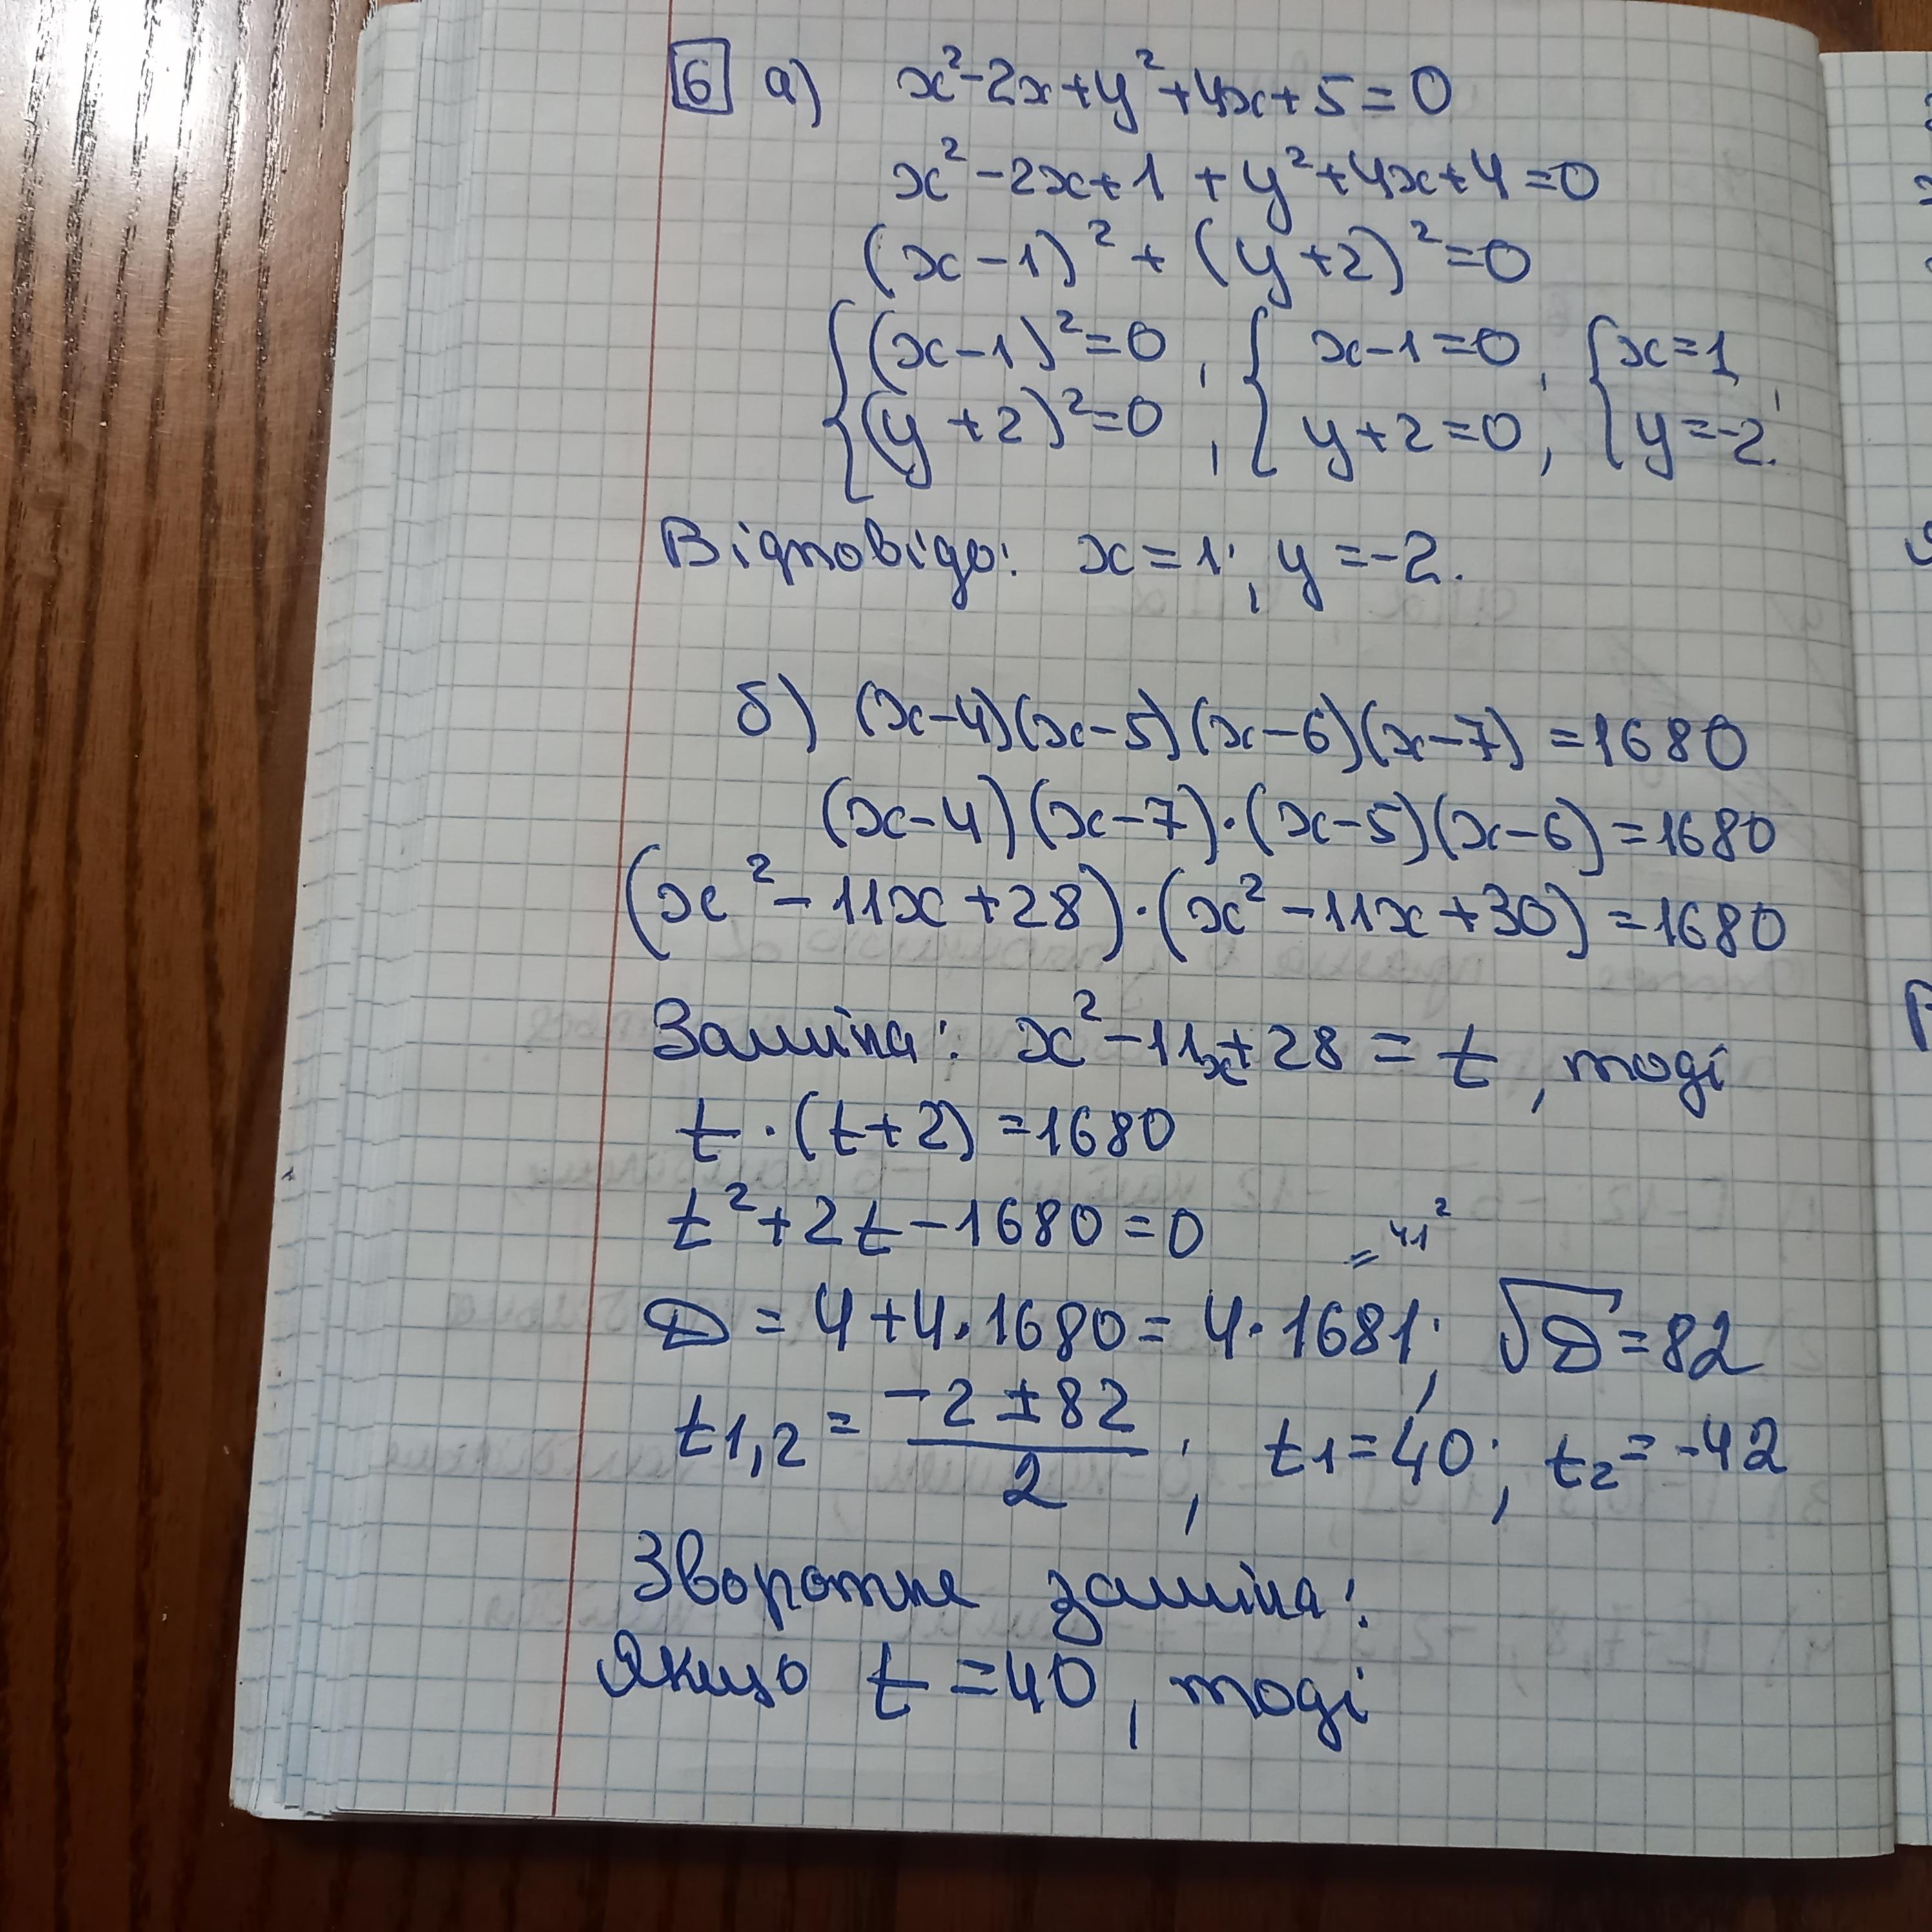 6 а) x²-2x+y²+4x+5=0
x²-2x+1+y²+4x+4=0
(x-1)²+(y+2)²=0
{(x-1)²=0, {x-1=0, {x=1,
(y+2)²=0, y+2=0, y=-2.
Відповідь: x=1; y=-2.
б) (x-4)(x-5)(x-6)(x-7)=1680
(x-4)(x-7)·(x-5)(x-6)=1680
(x²-11x+28)·(x²-11x+30)=1680
Заміна: x²-11x+28=t, тоді
t·(t+2)=1680
t²+2t-1680=0
=41²
D=4+4·1680=4·1681; √D=82
t1,2=(-2±82)/2; t1=40; t2=-42
Зворотня заміна:
Якщо t=40, тоді